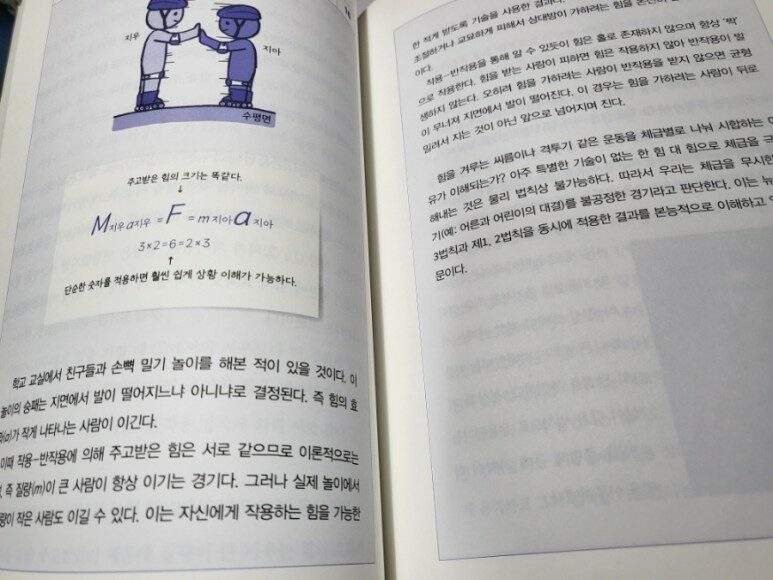 지우
지아
수평면
주고받은 힘의 크기는 똑같다.
↓
M지우a지우 = F = m지아a지아
3×2=6=2×3
↑
단순한 숫자를 적용하면 훨씬 쉽게 상황 이해가 가능하다.
학교 교실에서 친구들과 손뼉 밀기 놀이를 해본 적이 있을 것이다. 이
놀이의 승패는 지면에서 발이 떨어지느냐 아니냐로 결정된다. 즉 힘의 효
(a)가 작게 나타나는 사람이 이긴다.
이때 작용-반작용에 의해 주고받은 힘은 서로 같으므로 이론적으로는
즉 질량(m)이 큰 사람이 항상 이기는 경기다. 그러나 실제 놀이에서
량이 작은 사람도 이길 수 있다. 이는 자신에게 작용하는 힘을 가능한
한 적게 받도록 기술을 사용한 결과다.
조절하거나 교묘하게 피해서 상대방이 가하려는 힘을 온전히
작용-반작용을 통해 알 수 있듯이 힘은 홀로 존재하지 않으며 항상 '짝'
으로 작용한다. 힘을 받는 사람이 피하면 힘은 작용하지 않아 반작용이 발
생하지 않는다. 오히려 힘을 가하려는 사람이 반작용을 받지 않으면 균형
이 무너져 지면에서 발이 떨어진다. 이 경우는 힘을 가하려는 사람이 뒤로
밀려서 지는 것이 아닌 앞으로 넘어지며 진다.
힘을 겨루는 씨름이나 격투기 같은 운동을 체급별로 나눠 시합하는
유가 이해되는가? 아주 특별한 기술이 없는 한 힘 대 힘으로 체급을 극
해내는 것은 물리 법칙상 불가능하다. 따라서 우리는 체급을 무시한
기(예: 어른과 어린이의 대결)를 불공정한 경기라고 판단한다. 이는 뉴
3법칙과 제1, 2법칙을 동시에 적용한 결과를 본능적으로 이해하고
문이다.